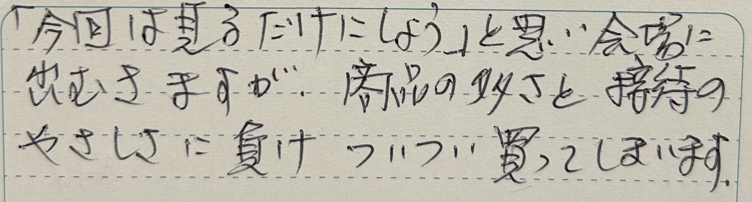 「今回は見るだけにしよう」と思い会場に
出むきますが、商品の多さと接待の
やさしさに負けついつい買ってしまいます.